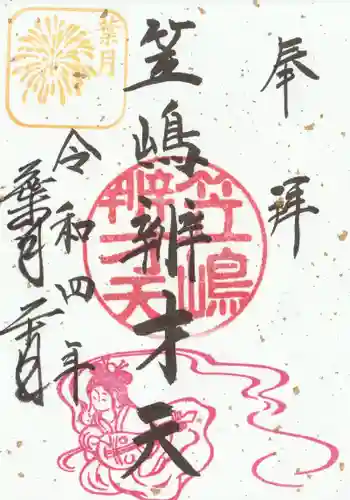 奉拝
笠嶋辨才天
笠嶋
辨天
令和四年
葉月二十日
葉月